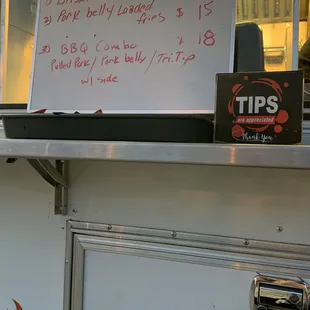 2) Pork belly Loaded
fries $ 15
3) BBQ Combo $ 18
Pulled Pork / Pork belly / Tri Tip
w/ side
TIPS
are appreciated
Thank You